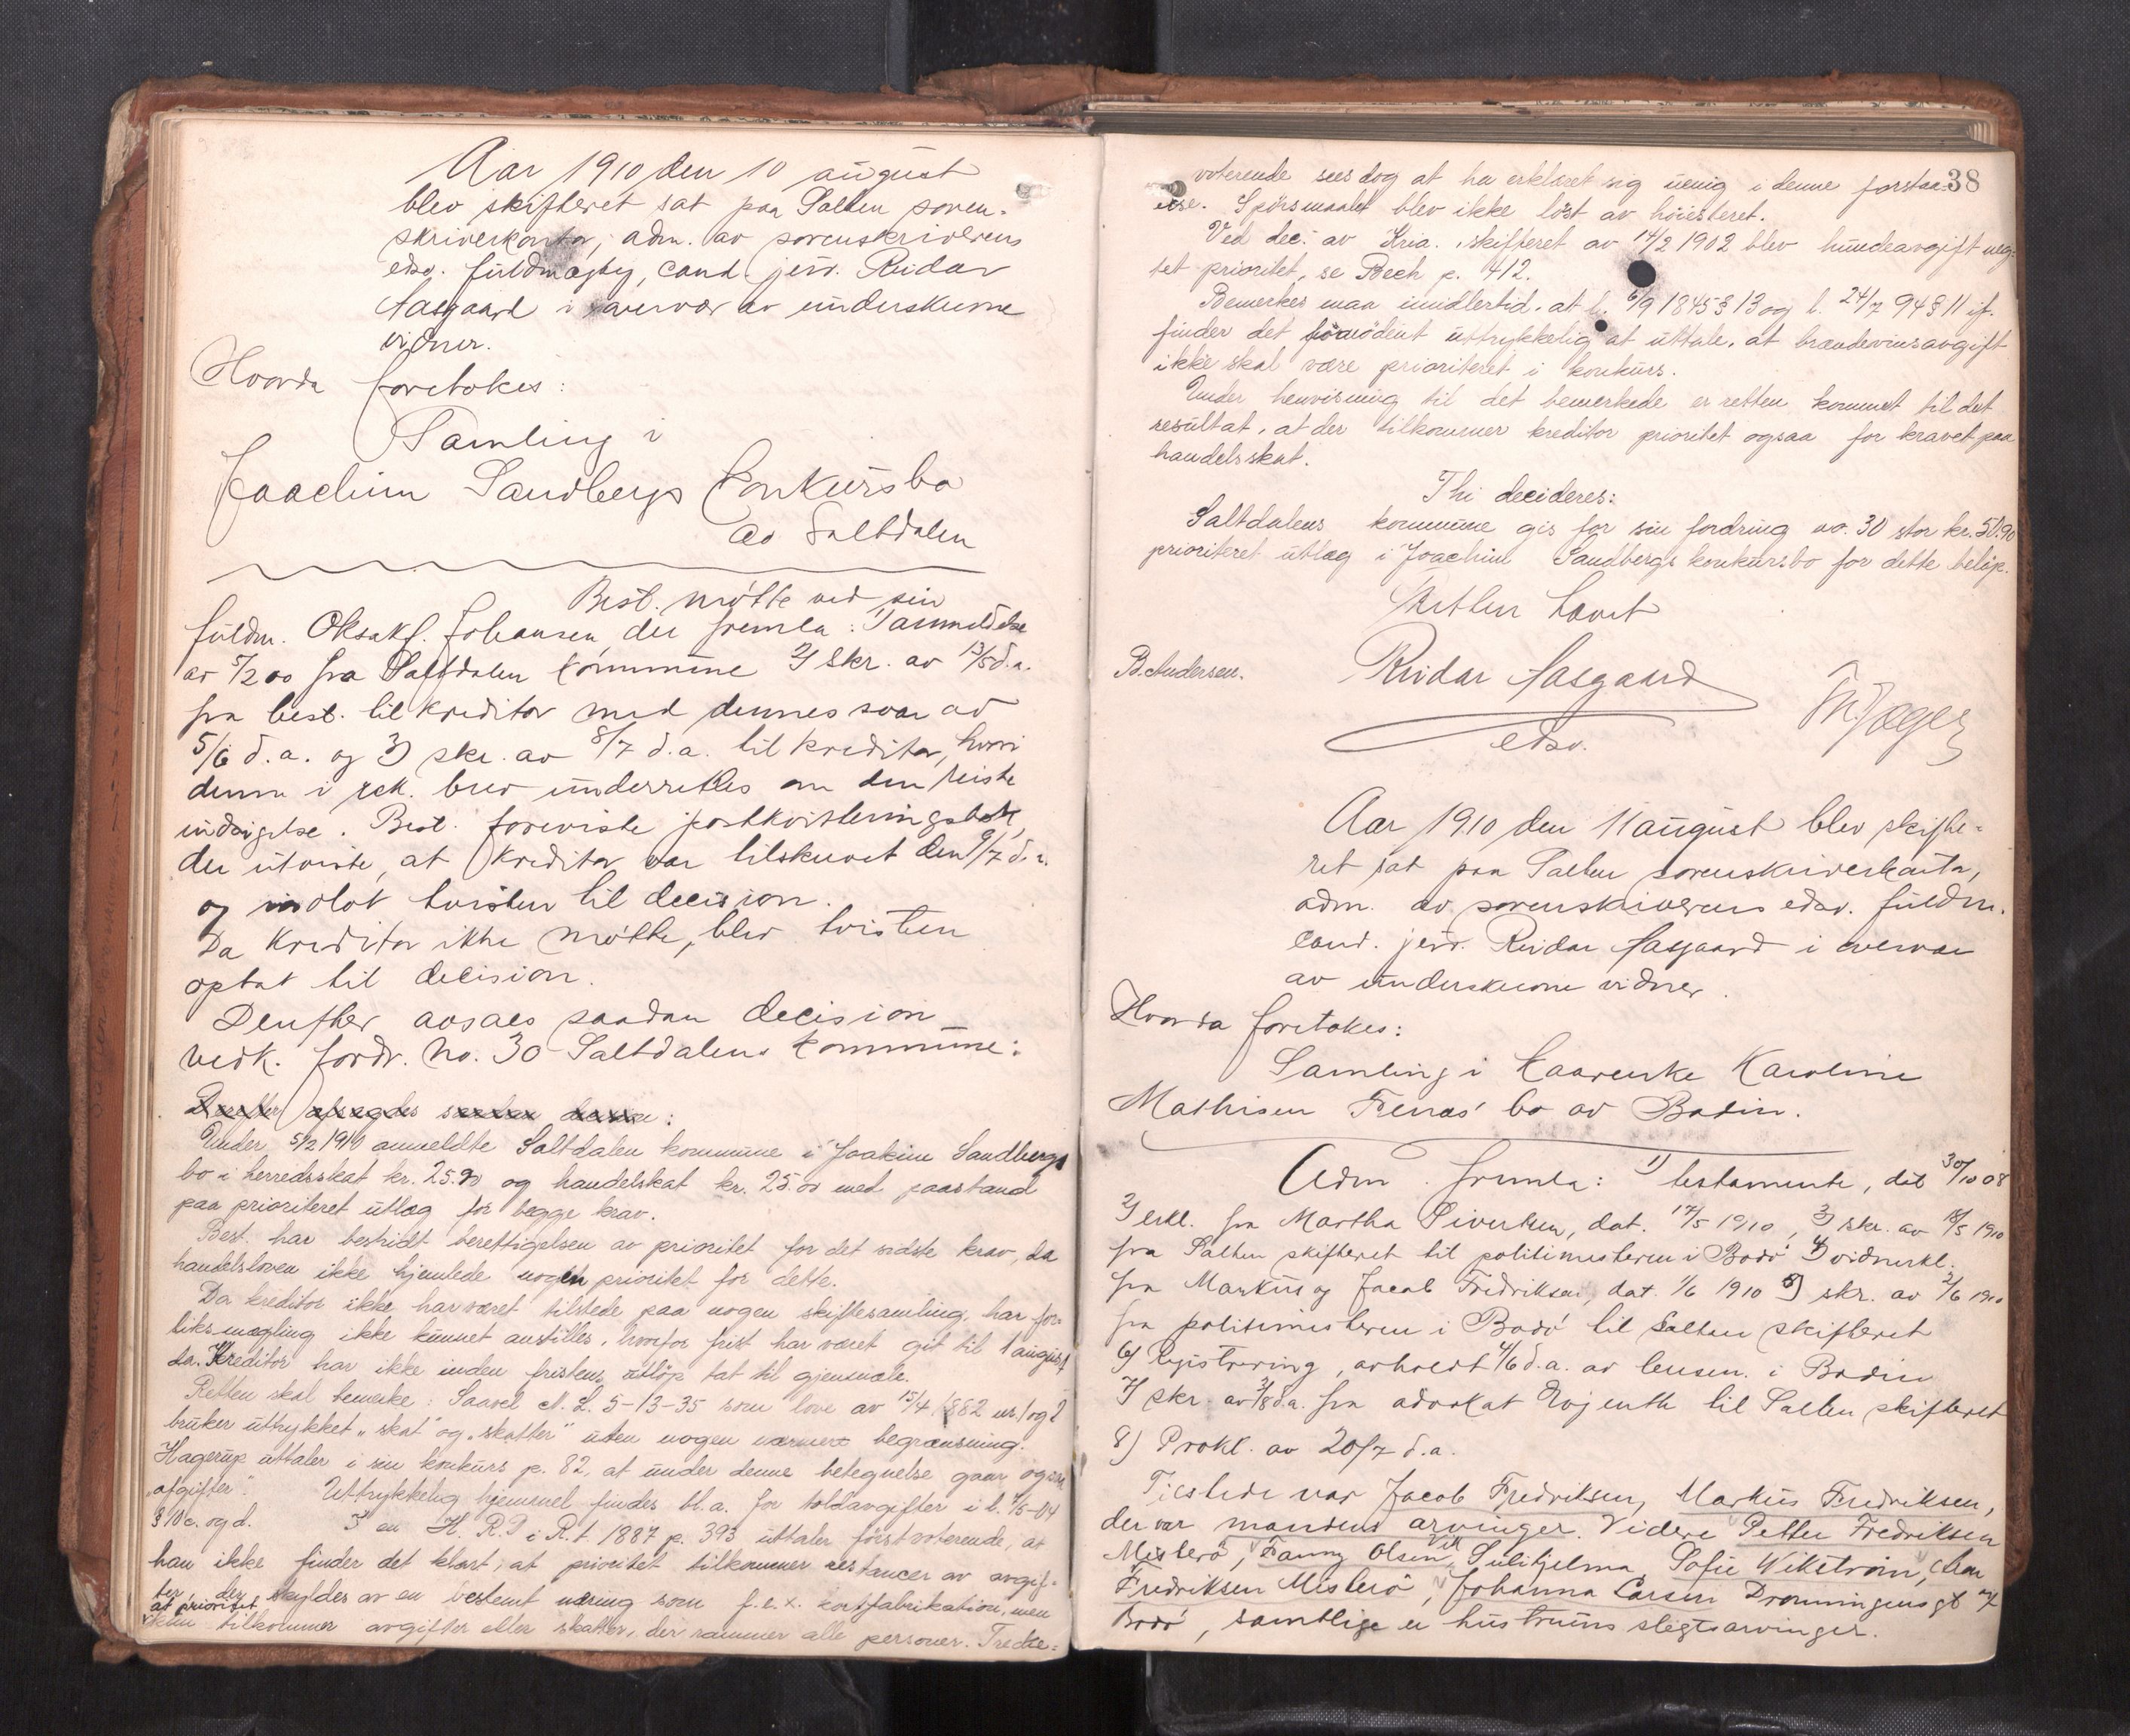 Aar 1910 den 10 august
blev skifteret sat paa Salten soren-
skriverkontor, adm. av sorenskriverens
edsv. fuldmægtig, cand. jur. Reidar
Aasgaard i overvær av underskrevne
vidner.
Hvorda foretokes:
Samling i
Joachim Sandbergs Konkursbo
av Saltdalen
Best. møtte ved sin
fuldm. Oksakf. Johansen, der fremla: 1) anmeldelse
av 5/2 00 fra Saltdalen kommune 2) skr. av 13/5 d.a.
fra best. til kreditor med dennes svar av
5/6 d.a. og 3) skr. av 8/7 d.a. til kreditor, hvori
denne i rek. brev underrettes om den reiste
indsigelse. Best. foreviste postkvitteringsbok,
der utviste, at kreditor var tilskrevet den 9/7 d.a.
og indlot tvisten til decision.
Da kreditor ikke møtte, blev tvisten
optat til decision.
Derefter avsaes saadan decision
vedk. fordr. no. 30 Saltdalens kommune:
Derefter afsagdes saadan :
Under 5/2 1910 anmeldte Saltdalen kommune i Joakim Sandbergs
bo i herredsskat kr. 25.90 og handelskat kr. 25.00 med paastand
paa prioriteret utlæg for begge krav.
Best. har bestridt berettigelsen av prioritet for det sidste krav, da
handelsloven ikke hjemlede nogen prioritet for dette.
Da kreditor ikke har været tilstede paa nogen skiftesamling, har for-
liksmægling ikke kunnet anstilles, hvorfor frist har været git til 1 august
da. Kreditor har ikke inden fristens utløp tat til gjenmæle.
Retten skal bemerke: Saavel N. L. 5-13-35 som love av 15/4 1882 nr. 1 og 2
bruker uttrykket "skat" og "skatter" uten nogen nærmere begrænsning.
Hagerup uttaler i sin konkurs p. 82, at under denne betegnelse gaar ogsaa
"afgifter". Uttrykkelig hjemmel findes bl.a. for toldavgifter i l. /5-04
§ 10 c. og d. I en H. R. D i R.t. 1887 p. 393 uttaler førstvoterende, at
han ikke finder det klart, at prioritet tilkommer restancer av avgif-
ter, der skyldes av en bestemt næring som f. ex. kortfabrikation, men
at prioritet
tilkommer avgifter eller skatter, der rammer alle personer. Tredie-
38
voterende sees dog at ha erklæret sig uenig i denne forstaa-
else. Spørsmaalet blev ikke løst av høiesteret.
Ved dec. av Kria. skifteret av 14/2 1902 blev hundeavgift neg-
tet prioritet, se Bech p. 412.
Bemerkes maa imidlertid, at l. 6/9 1845 § 13 og l. 24/7 94 § 11 if.
finder det fornødent uttrykkelig at uttale, at brændevinsavgift
ikke skal være prioriteret i konkurs.
Under henvisning til det bemerkede er retten kommet til det
resultat, at der tilkommer kreditor prioritet ogsaa for kravet paa
handelsskat.
Thi decideres:
Saltdalens kommune gis for sin fordring no. 30 stor kr. 50.90
prioriteret utlæg i Joachim Sandbergs konkursbo for dette beløp.
Retten hævet
B. Andersen. Reidar Aasgaard Jæger
edsv.
Aar 1910 den 11 august blev skifte-
ret sat paa Salten sorenskriverkontor,
adm. av sorenskriverens edsv. fuldm.
cand. jur. Reidar Aasgaard i overvær
av underskrevne vidner.
Hvorda foretokes:
Samling i Haavenke Karoline
Mathisen Fenes' bo av Bodin.
Adm. fremla: 1) testamente, dat 30/10 08
2) erkl. fra Martha Sivertsen, dat. 17/5 1910, 3) skr. av 18/5 1910
fra Salten skifteret til politimesteren i Bodø 4) vidnerkl.
fra Markus og Jacob Fredriksen, dat. 1/6 1910 5) skr. av 2/6 1910
fra politimesteren i Bodø til Salten skifteret
6) Registrering, avholdt 4/6 d.a. av lensm. i Bodin
7) skr. av 3/8 d.a. fra advokat Evjenth til Salten skifteret
8) Prokl. av 20/7 d.a.
Tilstede var Jacob Fredriksen, Markus Fredriksen,
der var mandens arvinger. Videre Petter Fredriksen
Misterø, Fanny Olsen, Sulitjelma, Sofie Wikstrøm,
Fredriksen Misterø, Johanna Larsen Dronningensgt 7
Bodø, samtlige er hustruens slegtsarvinger.